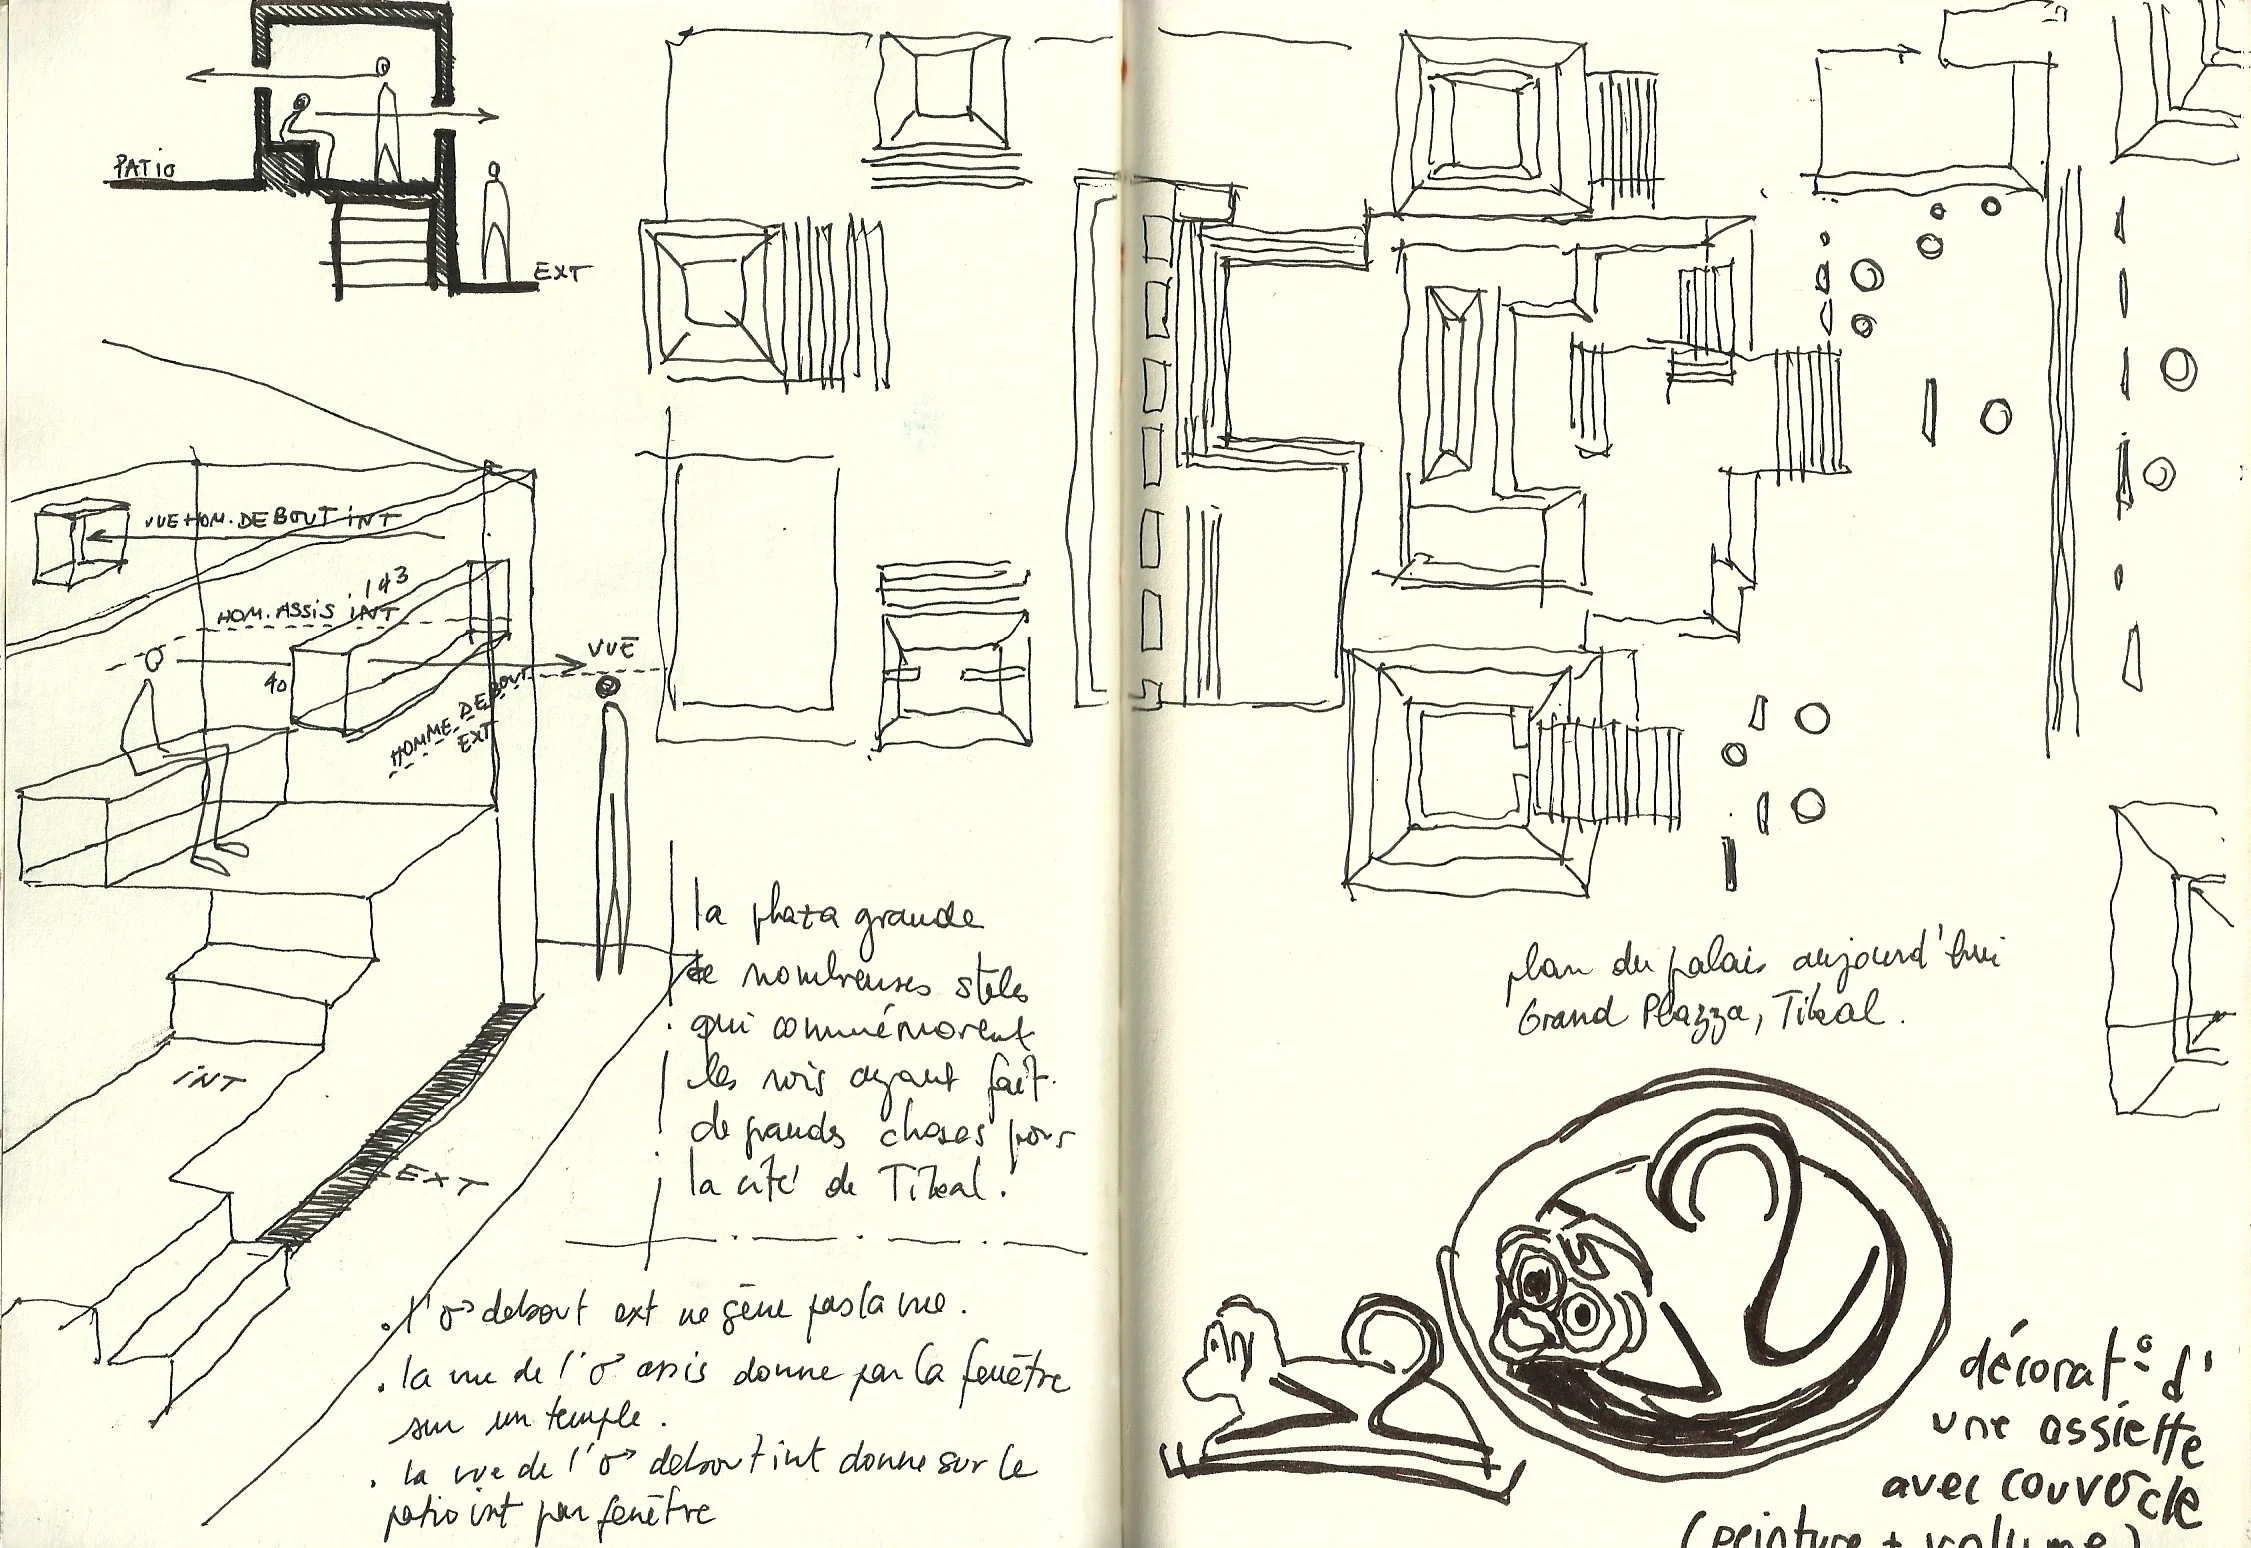 PATIO
EXT
VUE HOM. DEBOUT INT
143
HOM. ASSIS INT
VUE
40
HOMME DEBOUT
EXT
INT
EXT
la plaza grande
de nombreuses stèles
qui commémorent
les rois ayant fait
de grandes choses pour
la cité de Tikal.
. l'♂ debout ext ne gêne pas la vue.
. la vue de l'♂ assis donne par la fenêtre
sur un temple.
. la vue de l'♂ debout int donne sur le
patio int par fenêtre
plan du palais aujourd'hui
Grand Plazza, Tikal.
décorat° d'
une assiette
avec couvercle
(peinture + volume)